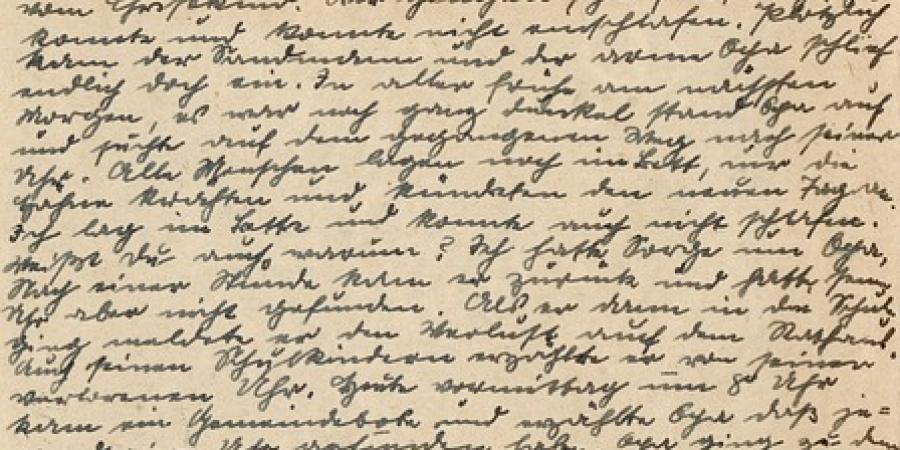 vom Christkind. Der
konnte und konnte nicht einschlafen. Plötzlich
kam der Sandmann und der arme Opa schlief
endlich doch ein. In aller Frühe am nächsten
Morgen, es war noch ganz dunkel stand Opa auf
und suchte auf dem gegangenen Weg nach seiner
Uhr. Alle Menschen lagen noch im Bett, nur die
Hähne krähten und kündeten den neuen Tag an.
Ich lag im Bette und konnte auch nicht schlafen.
Weißt Du auch warum? Ich hatte Sorge um Opa.
Nach einer Stunde kam er zurück und hatte seine
Uhr aber nicht gefunden. Als er dann in die Schule
ging meldete er den Verlust auf dem Rathaus.
Auch seinen Schulkindern erzählte er von seiner
verlorenen Uhr. Heute vormittag um 8 Uhr
kam ein Gemeindebote und erzählte Opa daß je=
Uhr gefunden habe. Opa ging zu dem